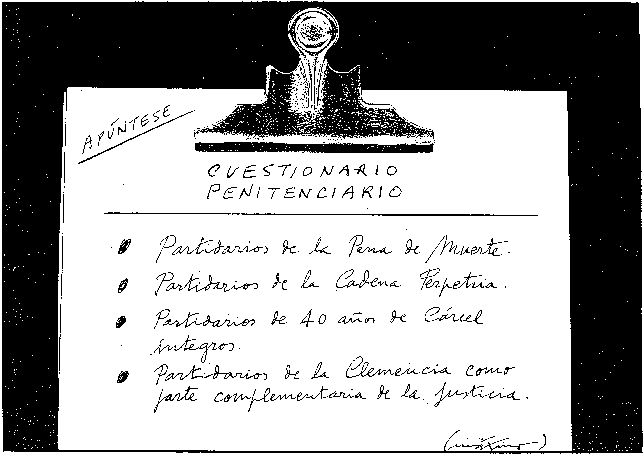 APÚNTESE
CUESTIONARIO
PENITENCIARIO
Partidarios de la Pena de Muerte.
Partidarios de la Cadena Perpetua.
Partidarios de 40 años de Cárcel
íntegros.
Partidarios de la Clemencia como
parte complementaria de la Justicia.